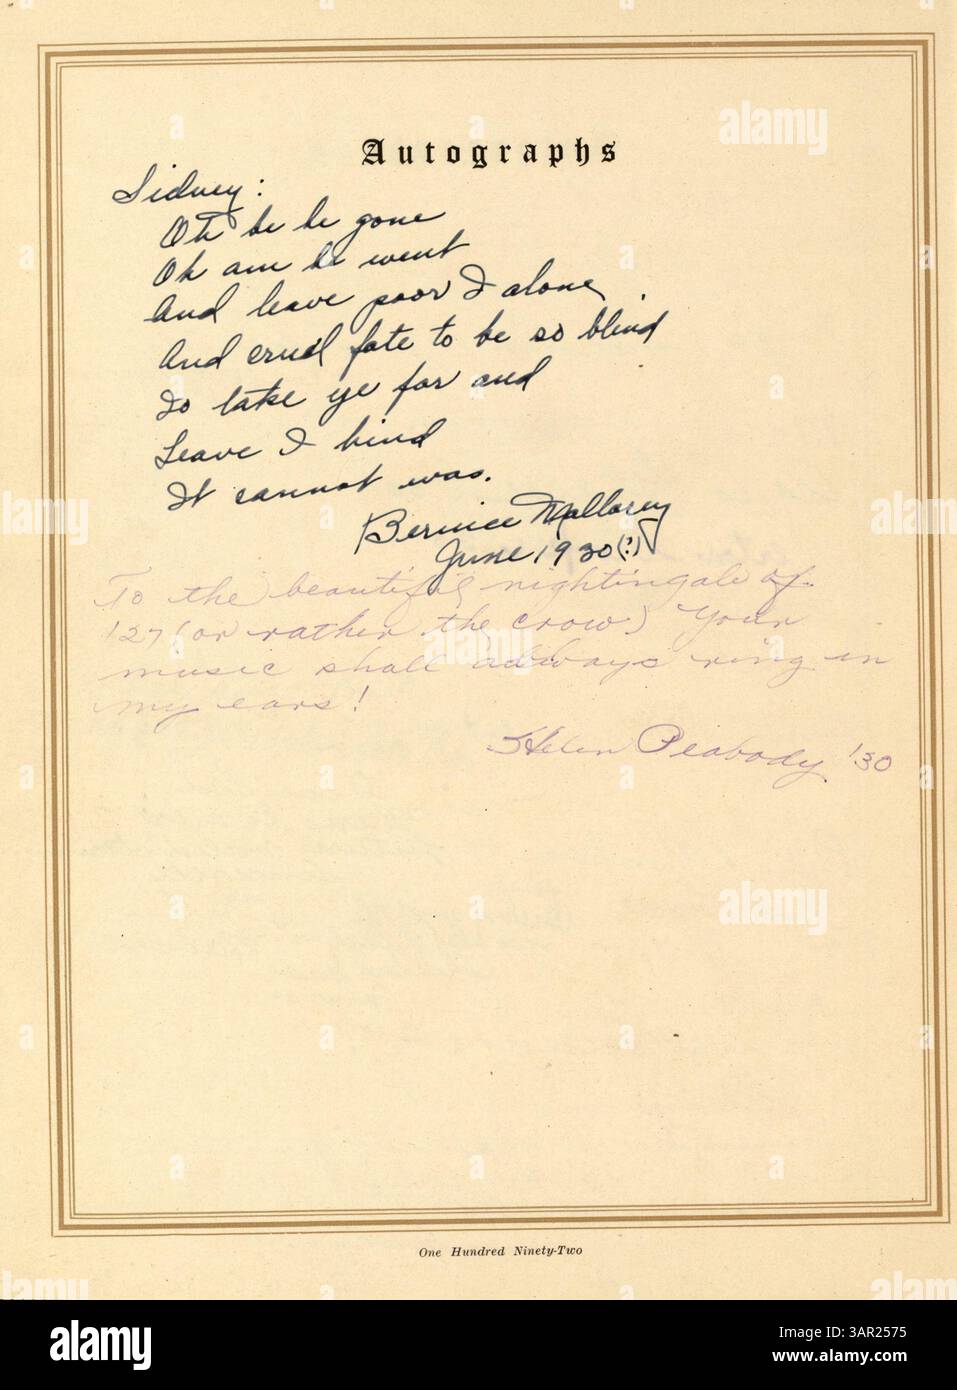 Autographs
Sidney:
Oh be he gone
Oh am he went
And leave poor I alone
And cruel fate to be so blind
To take ye for and
Leave I hind
It cannot was.
Bernice Mallorey
June 1930(?)
To the beautiful nightingale of
127 (or rather the crow) Your
music shall always ring in
my ears!
Helen Peabody '30
One Hundred Ninety-Two
alamy
Image ID: 3AR2575
www.alamy.com